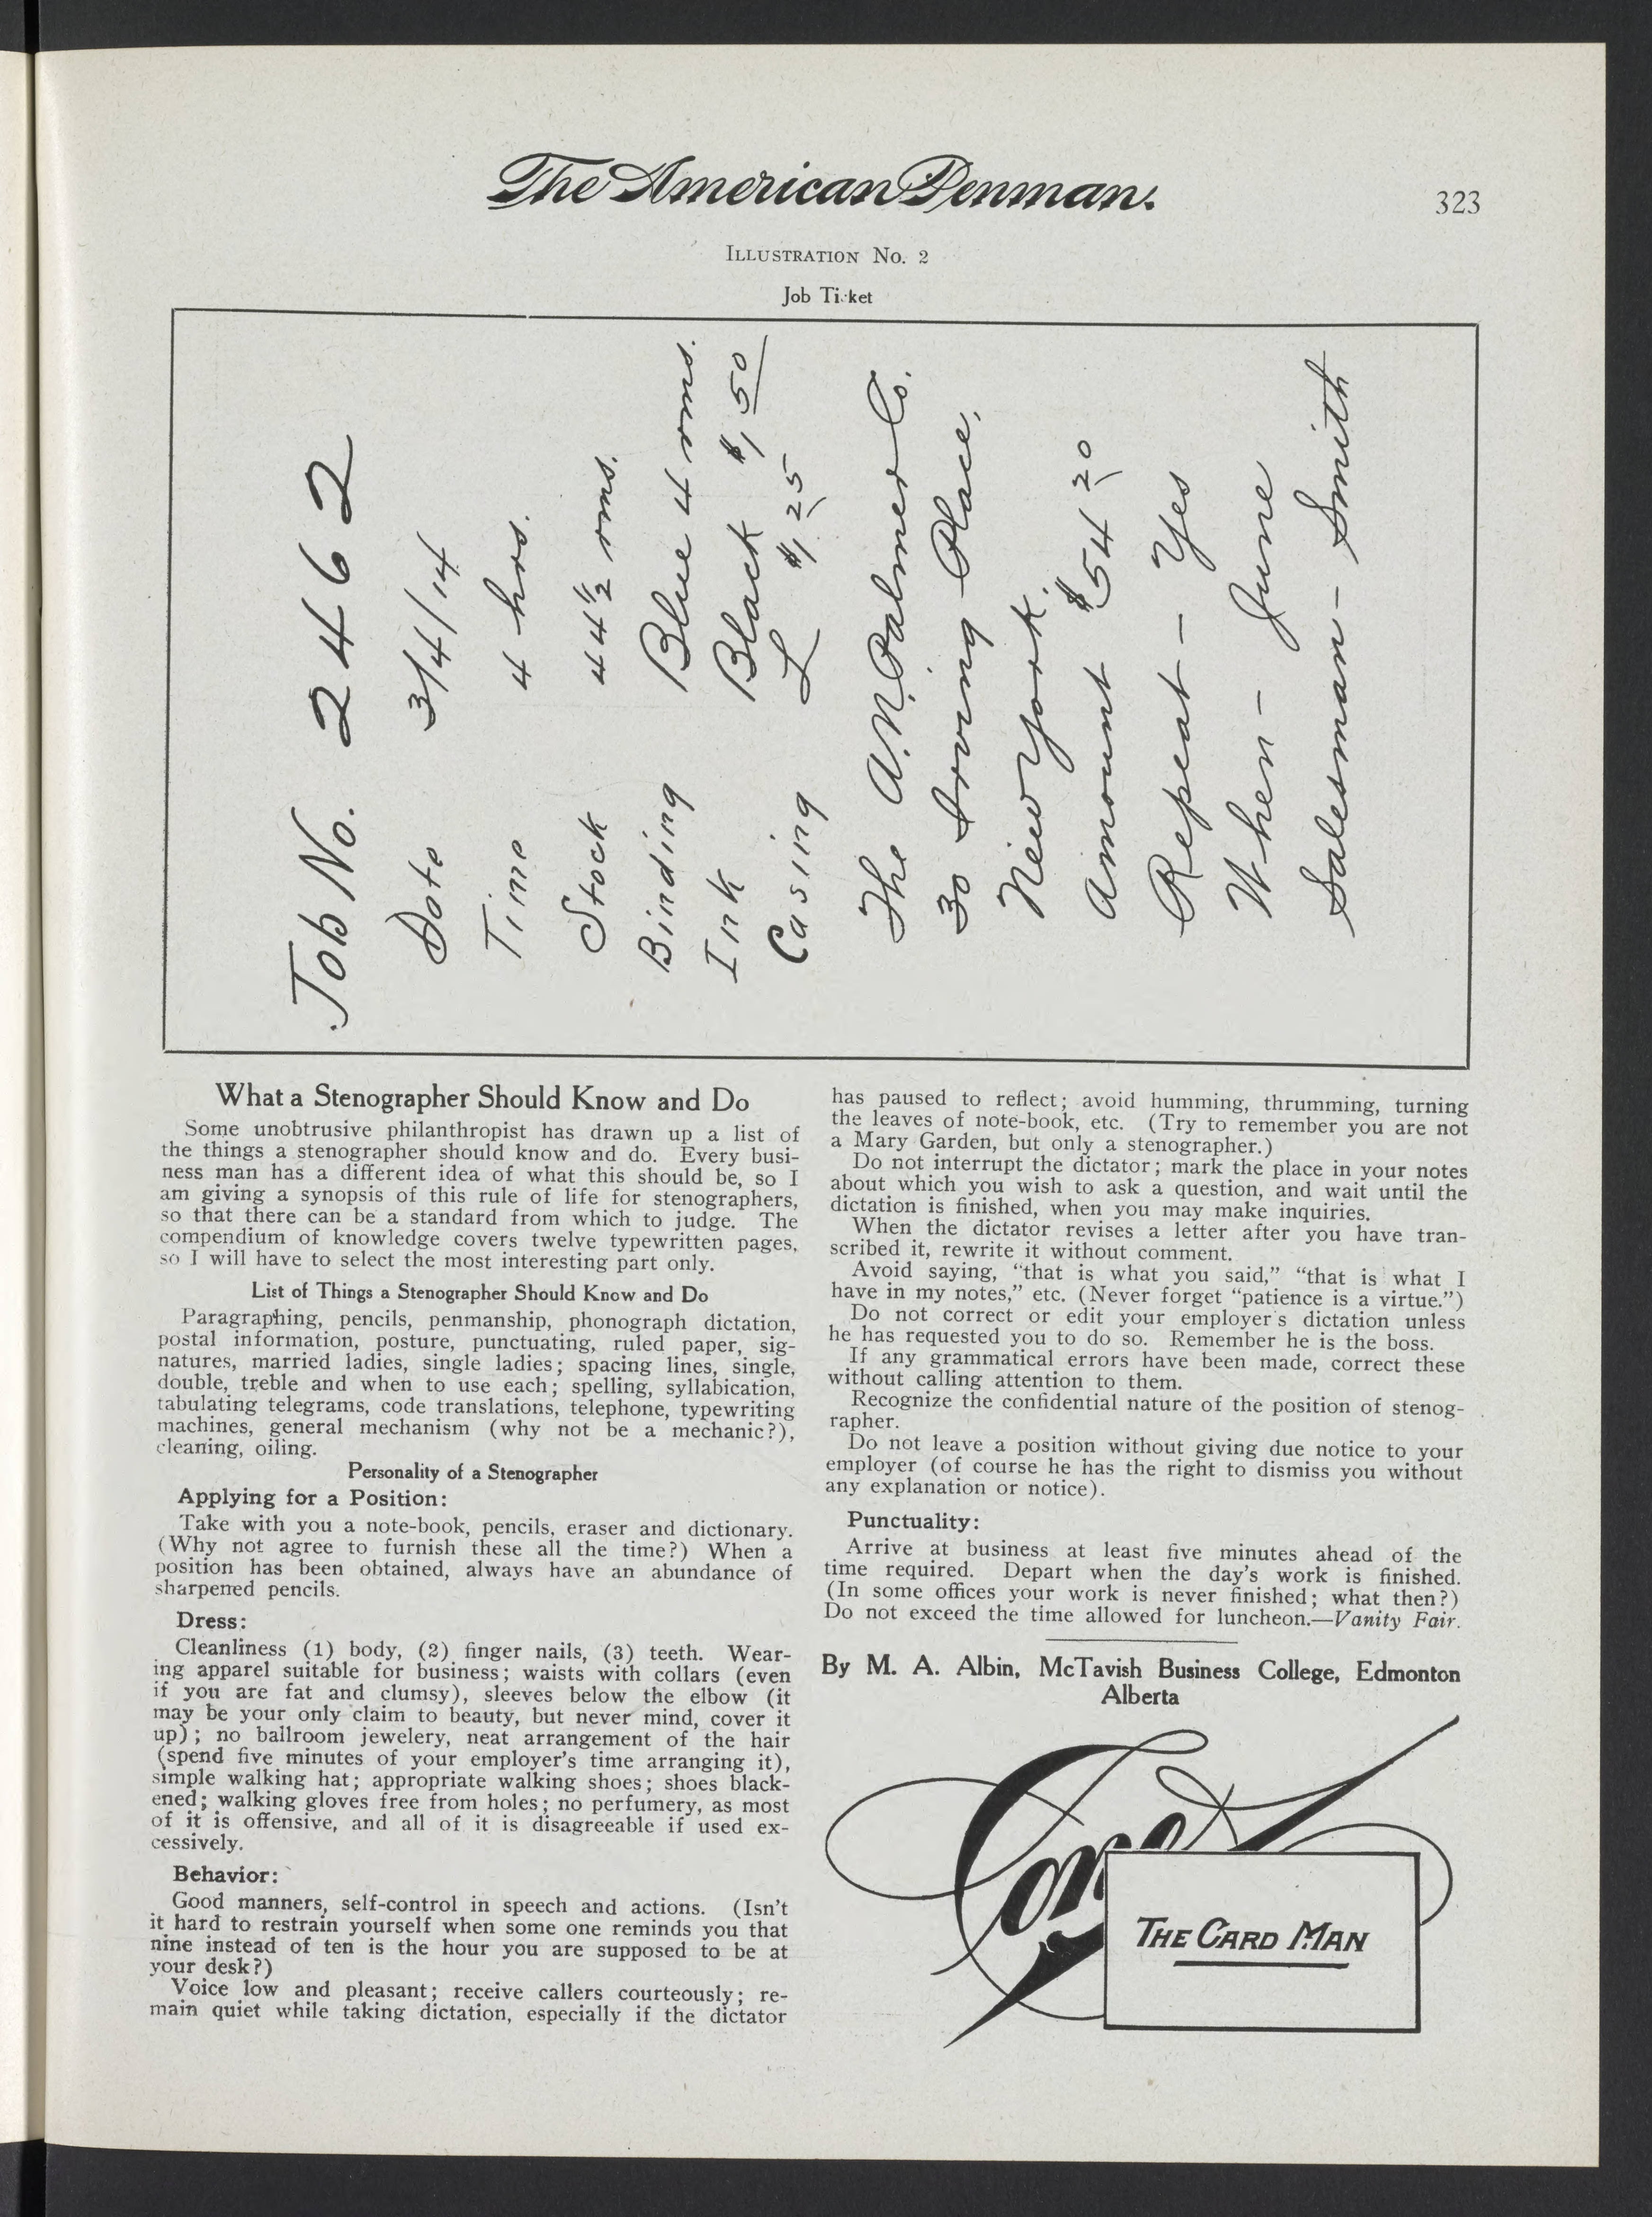 The American Penman.
323
Illustration No. 2
Job Ticket
Job No. 2462
Date 3/4/14
Time 4 hrs.
Stock 44½ rms.
Binding Blue 4 rms.
Ink Black $1.50
Casing L $1.25
The A.N. Palmer Co.
30 Irving Place,
New York.
Amount $54.20
Repeat - Yes
When - June
Salesman - Smith
What a Stenographer Should Know and Do
Some unobtrusive philanthropist has drawn up a list of
the things a stenographer should know and do. Every busi-
ness man has a different idea of what this should be, so I
am giving a synopsis of this rule of life for stenographers,
so that there can be a standard from which to judge. The
compendium of knowledge covers twelve typewritten pages,
so I will have to select the most interesting part only.
List of Things a Stenographer Should Know and Do
Paragraphing, pencils, penmanship, phonograph dictation,
postal information, posture, punctuating, ruled paper, sig-
natures, married ladies, single ladies; spacing lines, single,
double, treble and when to use each; spelling, syllabication,
tabulating telegrams, code translations, telephone, typewriting
machines, general mechanism (why not be a mechanic?),
cleaning, oiling.
Personality of a Stenographer
Applying for a Position:
Take with you a note-book, pencils, eraser and dictionary.
(Why not agree to furnish these all the time?) When a
position has been obtained, always have an abundance of
sharpened pencils.
Dress:
Cleanliness (1) body, (2) finger nails, (3) teeth. Wear-
ing apparel suitable for business; waists with collars (even
if you are fat and clumsy), sleeves below the elbow (it
may be your only claim to beauty, but never mind, cover it
up); no ballroom jewelery, neat arrangement of the hair
(spend five minutes of your employer's time arranging it),
simple walking hat; appropriate walking shoes; shoes black-
ened; walking gloves free from holes; no perfumery, as most
of it is offensive, and all of it is disagreeable if used ex-
cessively.
Behavior:
Good manners, self-control in speech and actions. (Isn't
it hard to restrain yourself when some one reminds you that
nine instead of ten is the hour you are supposed to be at
your desk?)
Voice low and pleasant; receive callers courteously; re-
main quiet while taking dictation, especially if the dictator
has paused to reflect; avoid humming, thrumming, turning
the leaves of note-book, etc. (Try to remember you are not
a Mary Garden, but only a stenographer.)
Do not interrupt the dictator; mark the place in your notes
about which you wish to ask a question, and wait until the
dictation is finished, when you may make inquiries.
When the dictator revises a letter after you have tran-
scribed it, rewrite it without comment.
Avoid saying, "that is what you said," "that is what I
have in my notes," etc. (Never forget "patience is a virtue.")
Do not correct or edit your employer's dictation unless
he has requested you to do so. Remember he is the boss.
If any grammatical errors have been made, correct these
without calling attention to them.
Recognize the confidential nature of the position of stenog-
rapher.
Do not leave a position without giving due notice to your
employer (of course he has the right to dismiss you without
any explanation or notice).
Punctuality:
Arrive at business at least five minutes ahead of the
time required. Depart when the day's work is finished.
(In some offices your work is never finished; what then?)
Do not exceed the time allowed for luncheon.—Vanity Fair.
By M. A. Albin, McTavish Business College, Edmonton
Alberta
The Card Man